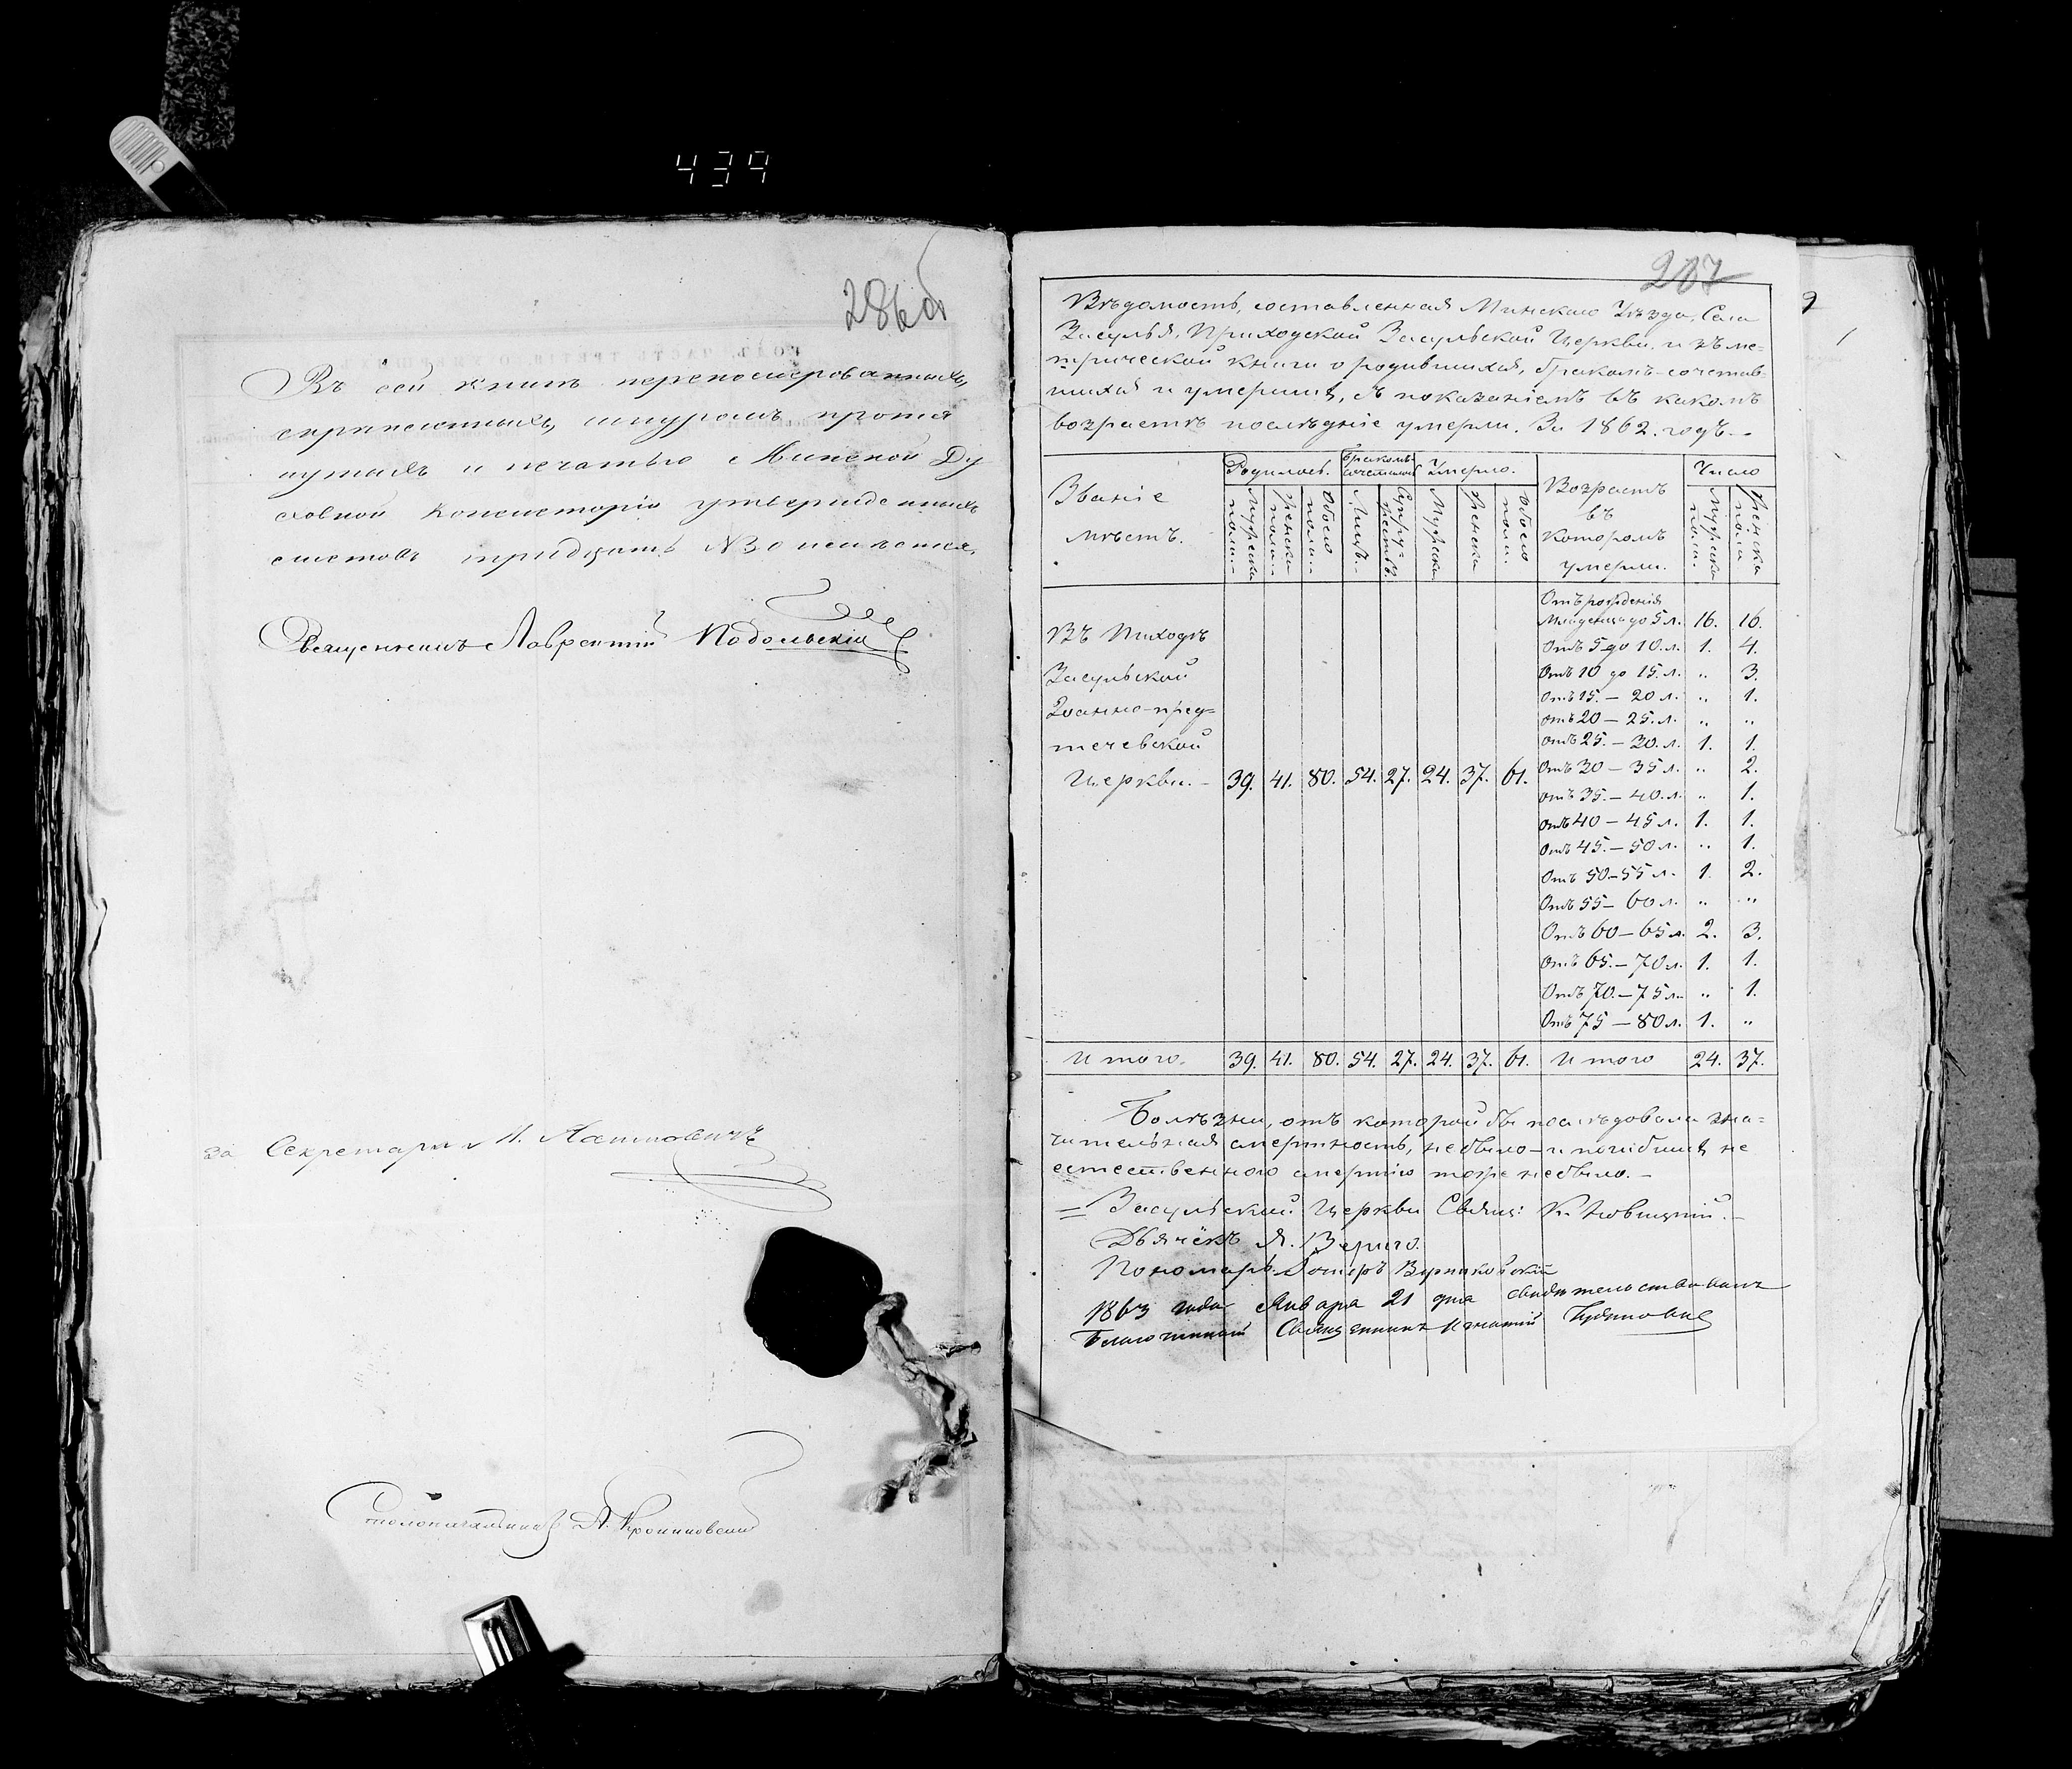 439
286об
Въ сей книгѣ перенумерованныхъ,
скрѣпленныхъ, шнуромъ протя
нутыхъ и печатью Минской Ду
ховной Консисторіи утвержденныхъ
листовъ тридцать №30 имѣется,
Священникъ Лаврентій Подольскій
за Секретаря И.
Столоначальникъ А.
287
Вѣдомость, составленная Минскаго Уѣзда, Села
Засулья, Приходской Засульской Церкви, изъ ме-
трической книги о родившихся, бракомъ-сочетав-
шихся и умершихъ, съ показаніемъ въ какомъ
возрастѣ послѣдніе умерли. За 1862. годъ.-
Званіе мѣстъ.
Родилось.
Бракомъ сочеталось
Умерло.
Возрастъ въ которомъ умерли.
Число
Мужеска пола.
Женска пола.
Обоего пола.
Лицъ.
Супружествъ.
Мужеска
Женска
Обоего пола.
Мужеска пола.
Женска пола.
Въ Приходѣ
Засульской
Іоанно-пред=
течевской
Церкви.- 39. 41. 80. 54. 27. 24. 37. 61.
Отъ рожденія
Младенца до 5 л. 16. 16.
Отъ 5 до 10. л. 1. 4.
Отъ 10 до 15. л. „ 3.
Отъ 15. – 20 л. „ 1.
отъ 20 – 25. л. „ „
отъ 25. – 30. л. 1. 1.
Отъ 30 – 35 л. „ 2.
отъ 35. – 40. л. „ 1.
отъ 40 – 45 л. 1. 1.
Отъ 45. – 50 л. „ 1.
Отъ 50–55 л. 1. 2.
Отъ 55– 60 л. „ „
Отъ 60 – 65 л. 2. 3.
Отъ 65. – 70 л. 1. 1.
Отъ 70. – 75 л. „ 1.
Отъ 75 – 80 л. 1. „
Итого. 39. 41. 80. 54. 27. 24. 37. 61. Итого 24. 37.
Болѣзни, отъ которой бы послѣдовала зна=
чительная смертность, небыло – и погибшихъ не
естественною смертію тоже небыло. –
Засульской Церкви Свящ: К.
Дьячекъ Я. Вериго.
Пономарь
1863 года Января 21 дня свидѣтельствовалъ
Благочинный Священникъ Игнатій